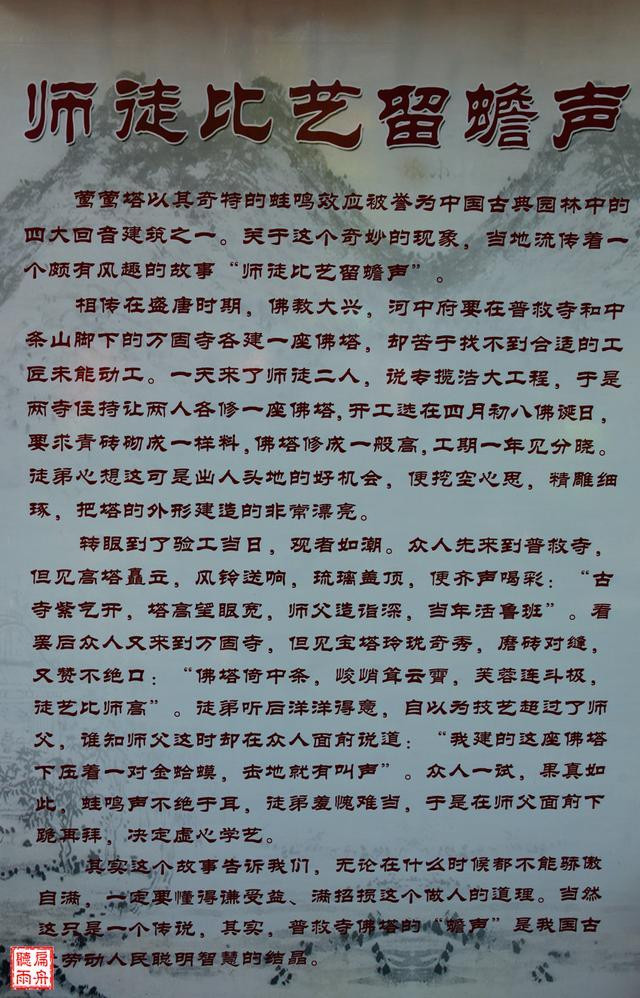 师徒比艺留蟾声
莺莺塔以其奇特的蛙鸣效应被誉为中国古典园林中的
四大回音建筑之一。关于这个奇妙的现象，当地流传着一
个颇有风趣的故事“师徒比艺留蟾声”。
相传在盛唐时期，佛教大兴，河中府要在普救寺和中
条山脚下的万固寺各建一座佛塔，却苦于找不到合适的工
匠未能动工。一天来了师徒二人，说专揽浩大工程，于是
两寺住持让两人各修一座佛塔，开工选在四月初八佛诞日，
要求青砖砌成一样料，佛塔修成一般高，工期一年见分晓。
徒弟心想这可是出人头地的好机会，便挖空心思，精雕细
琢，把塔的外形建造的非常漂亮。
转眼到了验工当日，观者如潮。众人先来到普救寺，
但见高塔矗立，风铃送响，琉璃盖顶，便齐声喝彩：“古
寺紫气开，塔高望眼宽，师父造诣深，当年活鲁班”。看
罢后众人又来到万固寺，但见宝塔玲珑奇秀，磨砖对缝，
又赞不绝口：“佛塔倚中条，峻峭耸云霄，芙蓉连斗极，
徒艺比师高”。徒弟听后洋洋得意，自以为技艺超过了师
父，谁知师父这时却在众人面前说道：“我建的这座佛塔
下压着一对金蛤蟆，击地就有叫声”。众人一试，果真如
此，蛙鸣声不绝于耳，徒弟羞愧难当，于是在师父面前下
跪再拜，决定虚心学艺。
其实这个故事告诉我们，无论在什么时候都不能骄傲
自满，一定要懂得谦受益、满招损这个做人的道理。当然
这只是一个传说，其实，普救寺佛塔的“蟾声”是我国古
劳动人民聪明智慧的结晶。
扁舟
聽雨